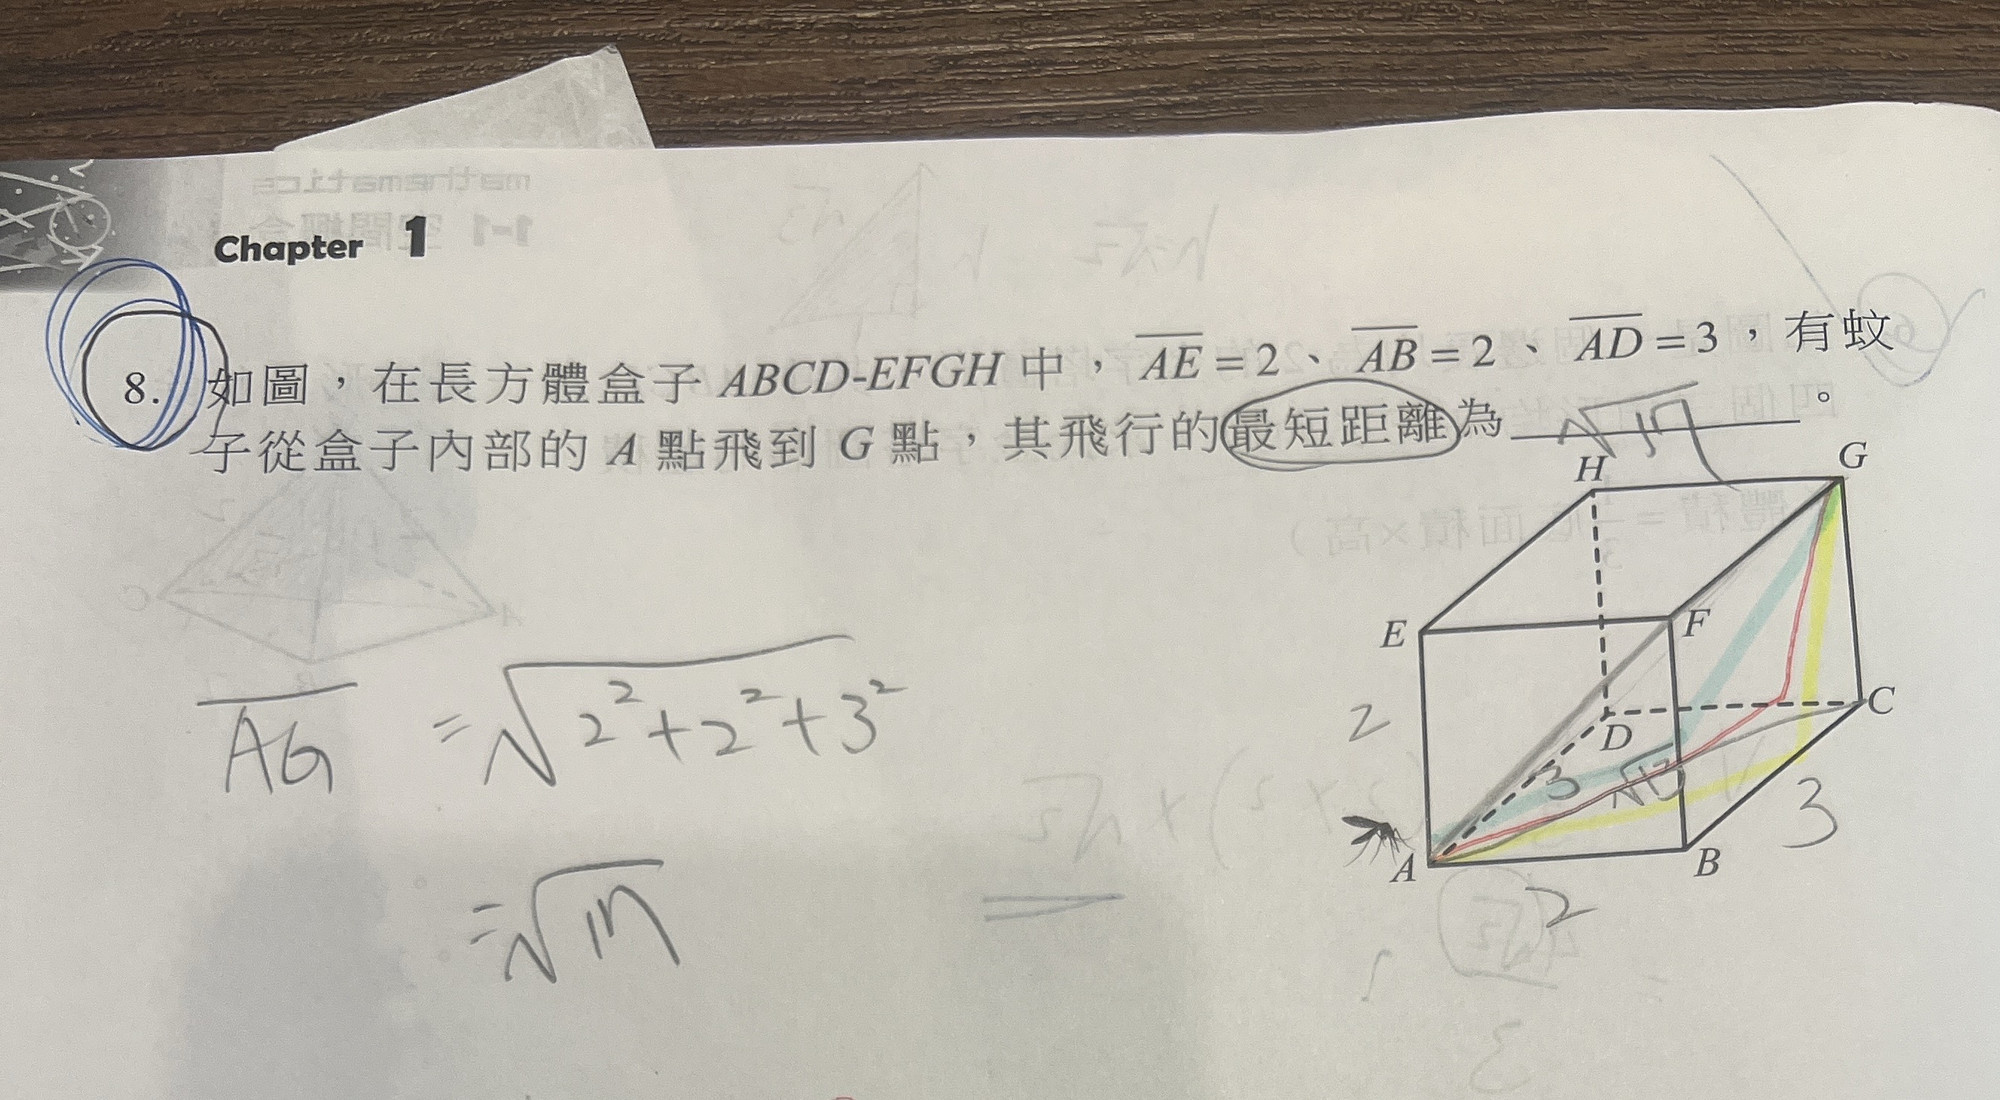 Chapter 1
8. 如圖，在長方體盒子 ABCD-EFGH 中，AE = 2、AB = 2、AD = 3，有蚊
子從盒子內部的 A 點飛到 G 點，其飛行的最短距離為 √17 。
H G
E F
2 D C
3 √13 3
A B
2
AG = √2²+2²+3²
= √17